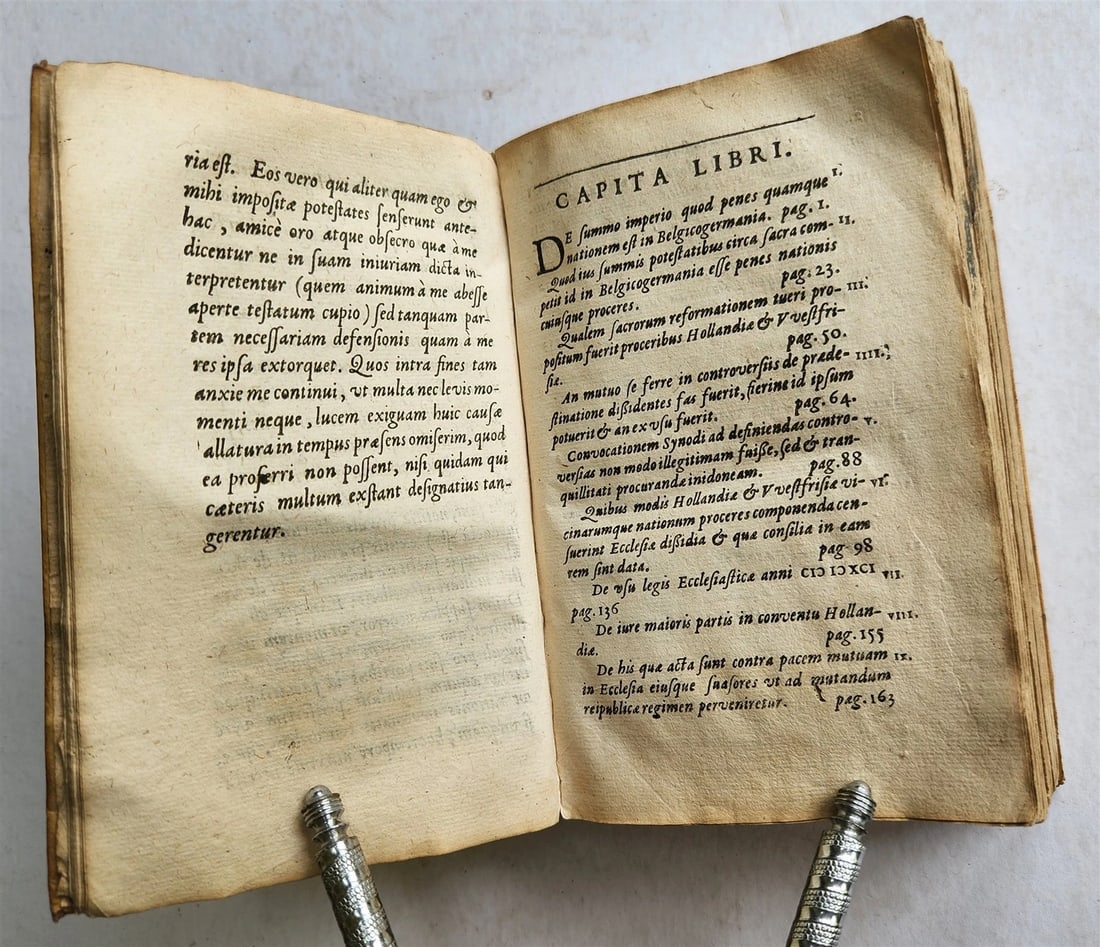 ria eſt. Eos vero qui aliter quam ego &
mihi impoſitæ poteſtates ſenſerunt ante-
hac , amicè oro atque obſecro quæ à me
dicentur ne in ſuam iniuriam dicta in-
terpretentur (quem animum à me abeſſe
aperte teſtatum cupio) ſed tanquam par-
tem neceſſariam defenſionis quam à me
res ipſa extorquet. Quos intra fines tam
anxie me continui, vt multa nec levis mo-
menti neque , lucem exiguam huic cauſæ
allatura in tempus præſens omiſerim, quod
ea proferri non poſſent, niſi quidam qui
cæteris multum exſtant deſignatius tan-
gerentur.
CAPITA LIBRI.
DE ſummo imperio quod penes quamque I.
nationem eſt in Belgicogermania. pag. 1.
Quod ius ſummis poteſtatibus circa ſacra com- II.
petit id in Belgicogermania eſſe penes nationis
cuiuſque proceres. pag. 23.
Qualem ſacrorum reformationem tueri pro- III.
poſitum fuerit proceribus Hollandiæ & VVeſtfri-
ſiæ. pag. 50.
An mutuo ſe ferre in controverſiis de præde- IIII.
ſtinatione dißidentes fas fuerit, fierine id ipſum
potuerit & an ex vſu fuerit. pag. 64.
Convocationem Synodi ad definiendas contro- V.
verſias non modo illegitimam fuiße, ſed & tran-
quillitati procurandæ inidoneam. pag. 88
Quibus modis Hollandiæ & VVeſtfriſiæ vi- VI.
cinarumque nationum proceres componenda cen-
ſuerint Eccleſiæ dißidia & quæ conſilia in eam
rem ſint data. pag 98
De vſu legis Eccleſiaſticæ anni CIↃ IↃ XCI VII.
pag. 136
De iure maioris partis in conventu Hollan- VIII.
diæ. pag. 155
De his quæ acta ſunt contra pacem mutuam IX.
in Eccleſia eiuſque ſuaſores vt ad mutandum
reipublicæ regimen perveniretur. pæg. 163